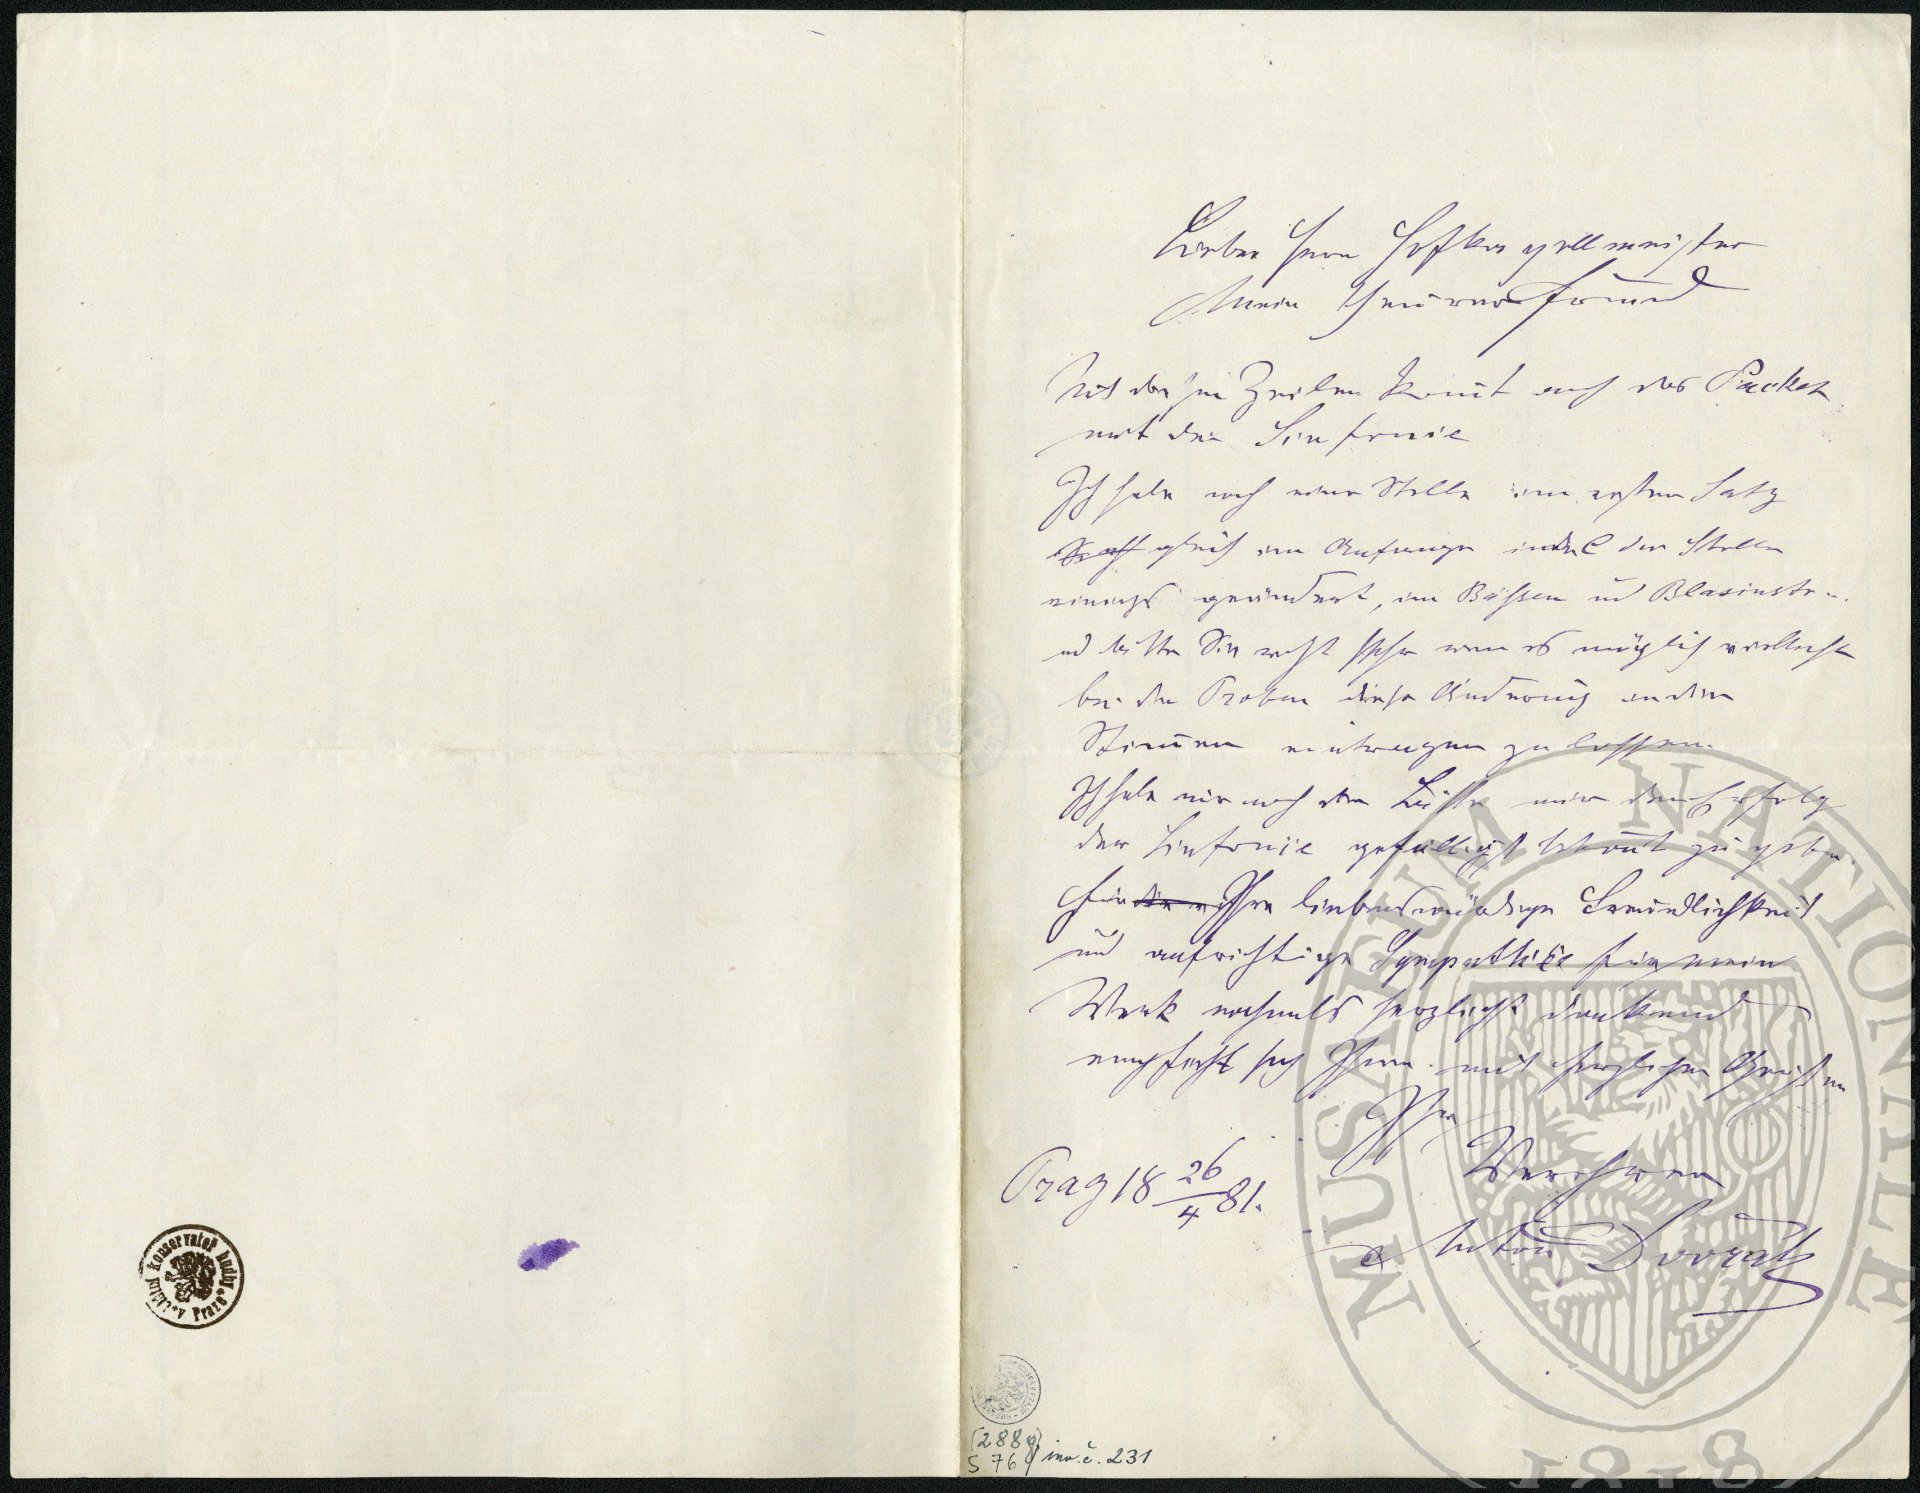 Lieber Herr Hofkapellmeister
Mein theurer Freund
Mit diesen Zeilen kom̅t auch das Packet
mit der Sinfonie
Ich habe noch eine Stelle im ersten Satz
gleich im Anfange der Stelle
einiges geändert, im Bässen und Blasinstr.
und bitte Sie recht sehr wenn es möglich vielleicht
bei den Proben diese Änderung in den
Stim̅en eintragen zu lassen.
Ich habe nur noch die Bitte mir den Erfolg
der Sinfonie gefälligst bekannt zu geben.
Für die Ihre liebenswürdige Freundlichkeit
und aufrichtige Sympathie für mein
Werk nochmals herzlichst dankend
empfiehlt sich Ihnen mit herzlichen Grüßen
Ihr
Verehrer
Prag 18 26/4 81.
Anton Dvořák
Státní konservatoř hudby v Praze
(288
S 76 inv. č. 231
MUSAEUM NATIONALE
1818